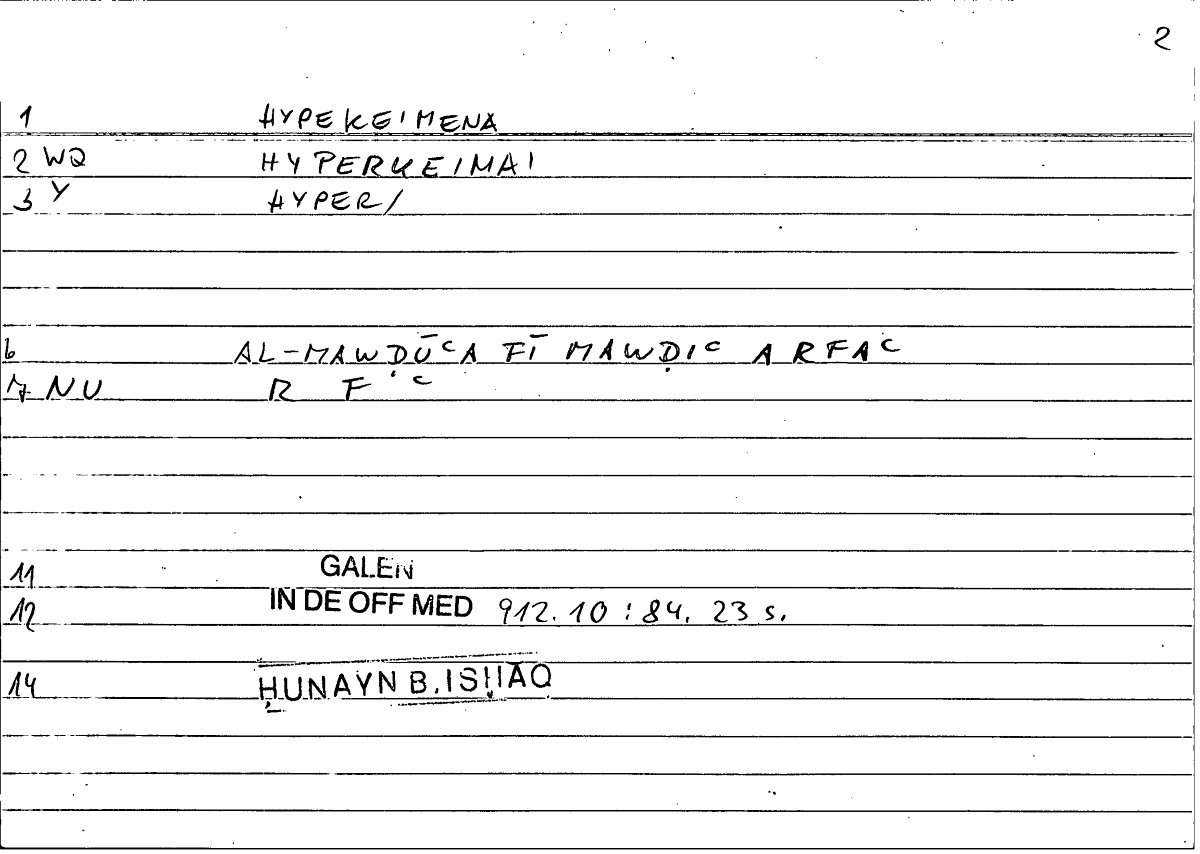 2
1 HYPEKEIMENA
2 WQ HYPERKEIMAI
3 Y HYPER/
6 AL-MAWḌŪʿA FĪ MAWḌIʿ ARFAʿ
7 NU R F ʿ
11 GALEN
12 IN DE OFF MED 912.10 : 84. 23 s.
14 ḤUNAYN B. ISḤĀQ